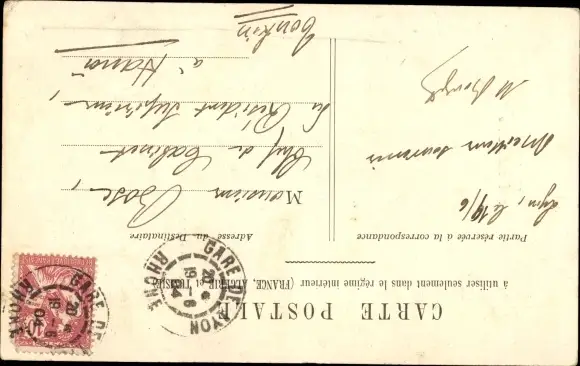 CARTE POSTALE
à utiliser seulement dans le régime intérieur (FRANCE, ALGÉRIE et TUNISIE)
Partie réservée à la correspondance
Adresse du Destinataire
Lyon, le 19/6
Meilleur souvenir
Monsieur Bose,
Chef de Cabinet
du Résident Supérieur,
à Hanoï
Tonkin
GARE DE LYON
RHONE
20
19 - 6
04
GARE DE
RHONE
20
19 - 6
04